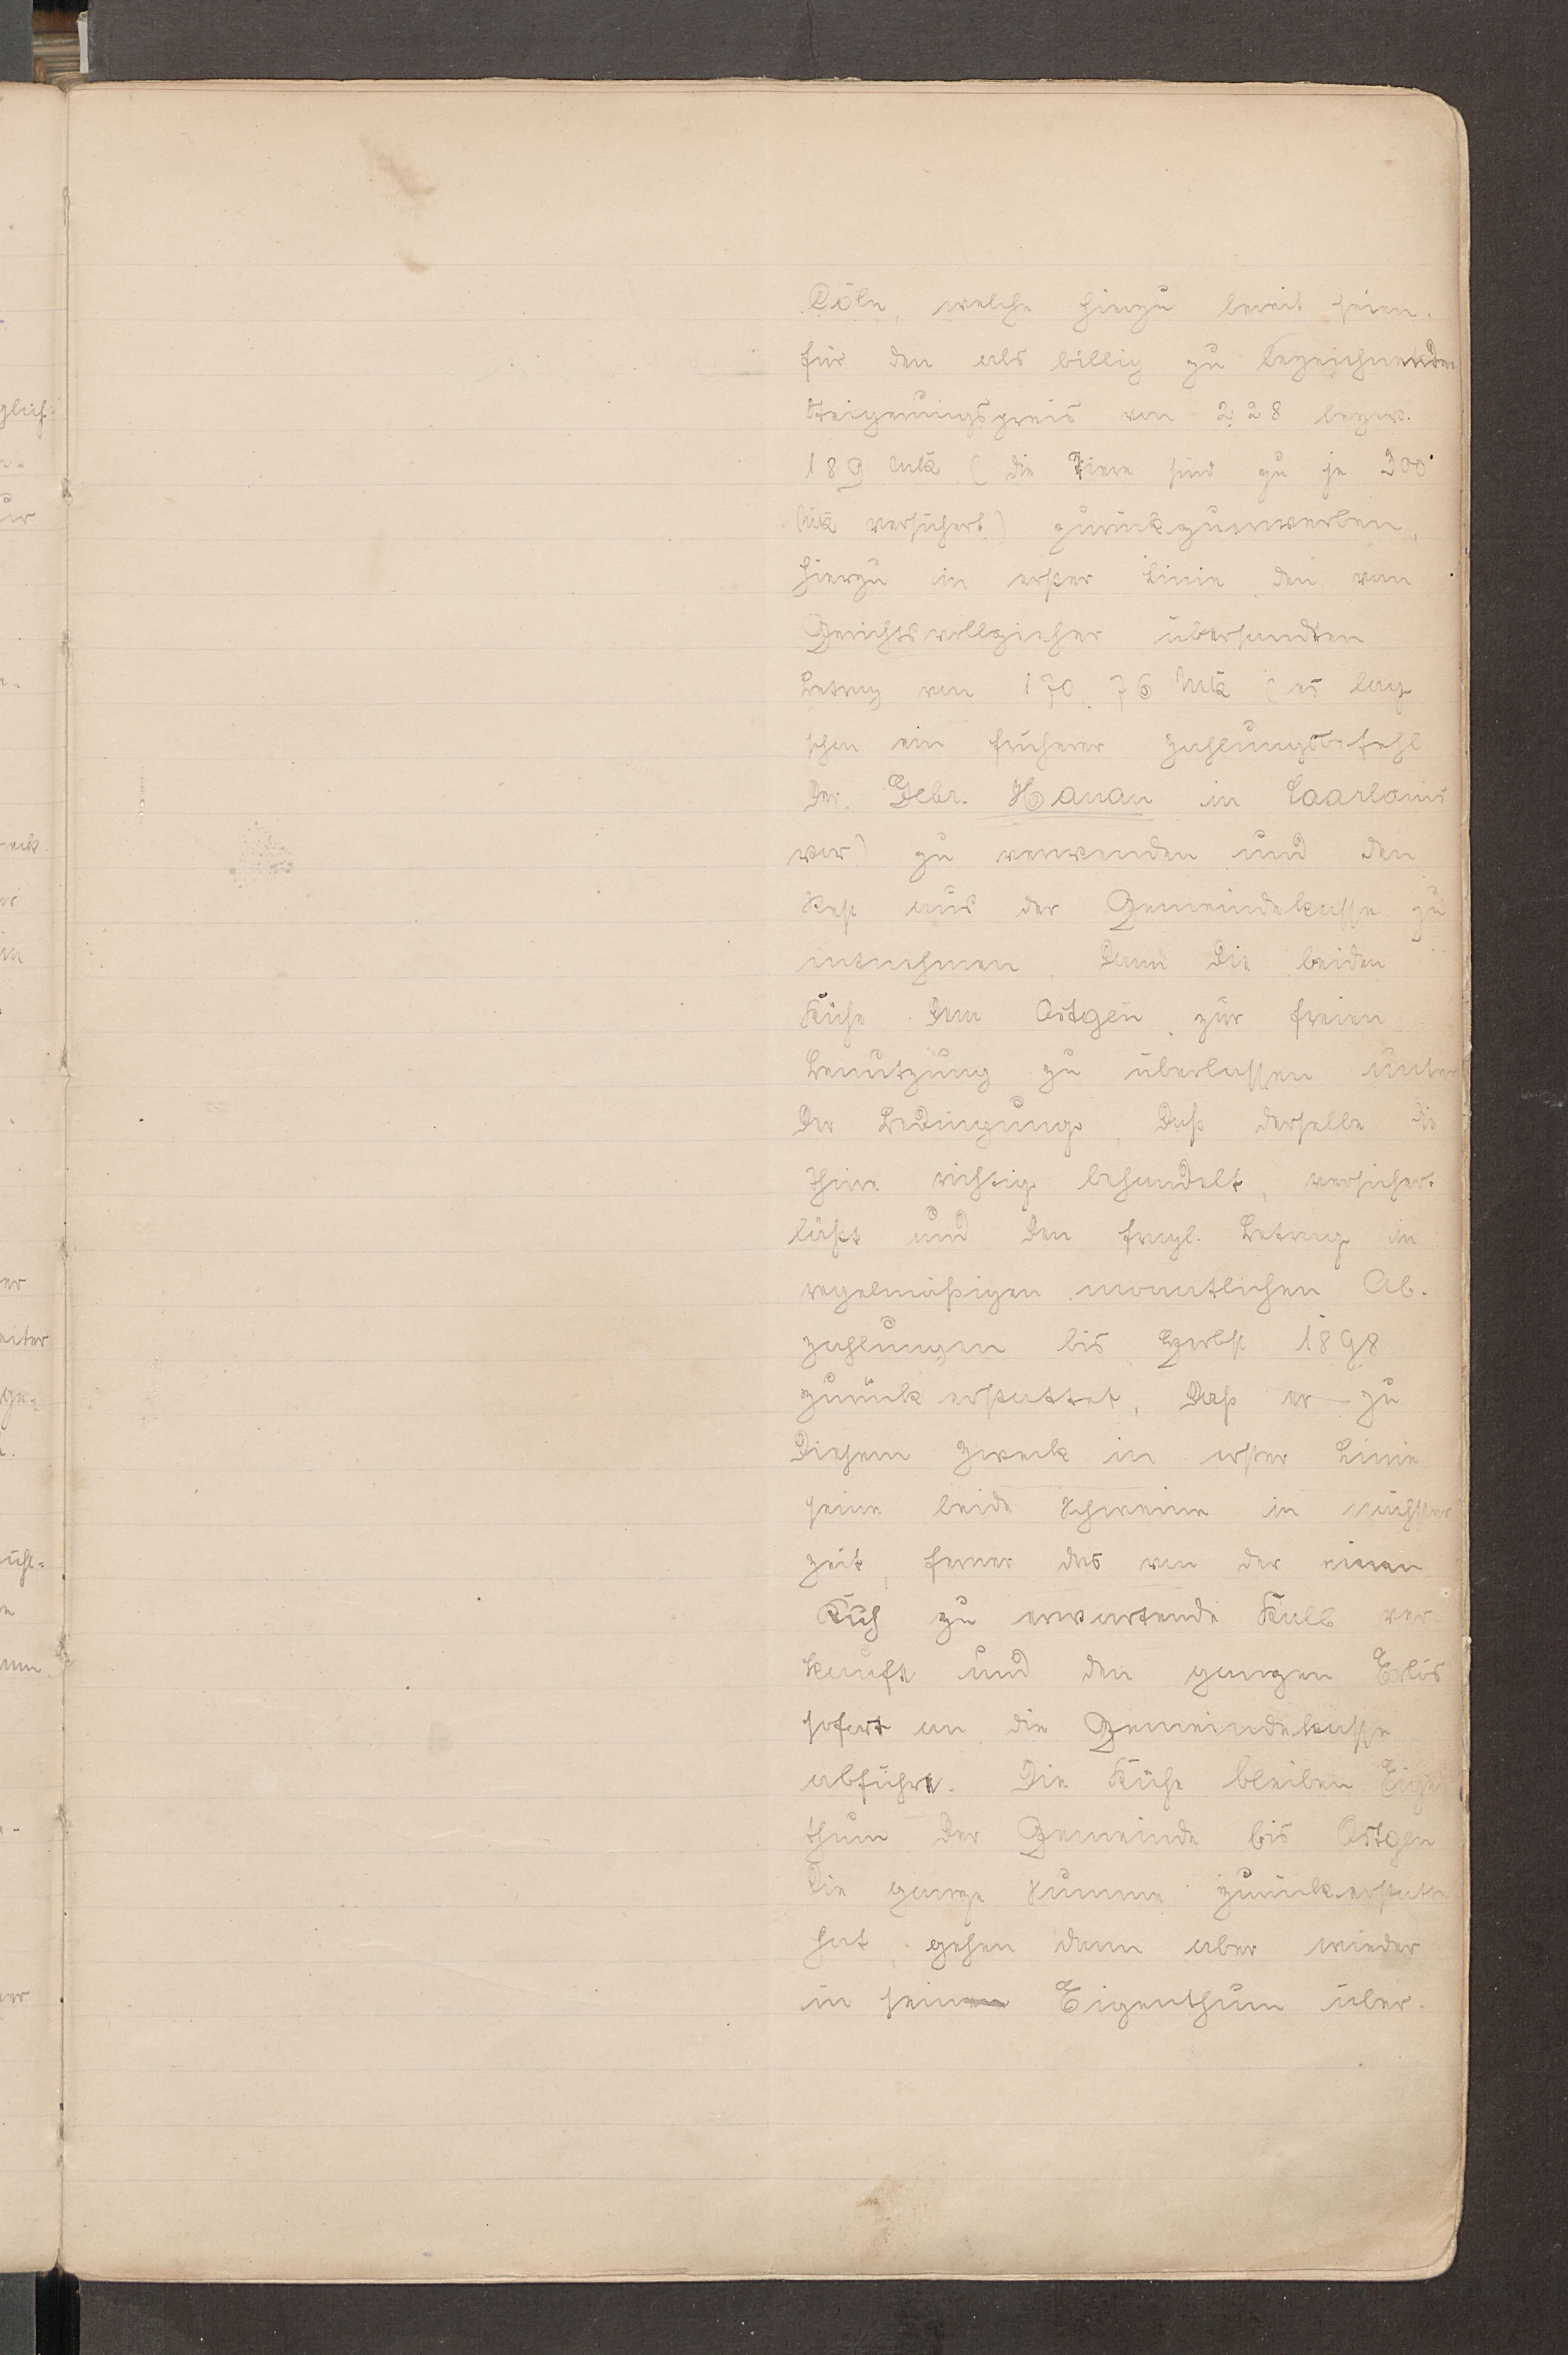 Cöln, welche hierzu bereit seien,
für den als billig zu bezeichnenden
Steigerungspreis von 228 bezw.
189 Mk (die Tiere sind zu je 300
Mk versichert) zurückzuerwerben,
hierzu in erster Linie den vom
Gerichtsvollzieher übersandten
Betrag von 170,76 Mk (es lag
schon ein früherer Zahlungsbefehl
der Gebr. Hanau in Saarlouis
vor) zu verwenden und den
Rest aus der Gemeindekasse zu
entnehmen. Dann die beiden
Kühe dem Ostgen zur freien
Benutzung zu überlassen unter
der Bedingung, daß derselbe die
Thiere richtig behandelt, versichert
läßt und den fragl. Betrag in
regelmäßigen monatlichen Ab-
zahlungen bis Herbst 1898
zurückerstattet, daß er zu
diesem Zweck in erster Linie
seine beide Schweine in nächster
Zeit, ferner das von der einen
Kuh zu erwartende Kalb ver-
kauft und den ganzen Erlös
sofort an die Gemeindekasse
abführe. Die Kühe bleiben Eigen
thum der Gemeinde bis Ostgen
die ganze Summe zurückerstattet
hat, gehen dann aber wieder
in sein Eigenthum über.